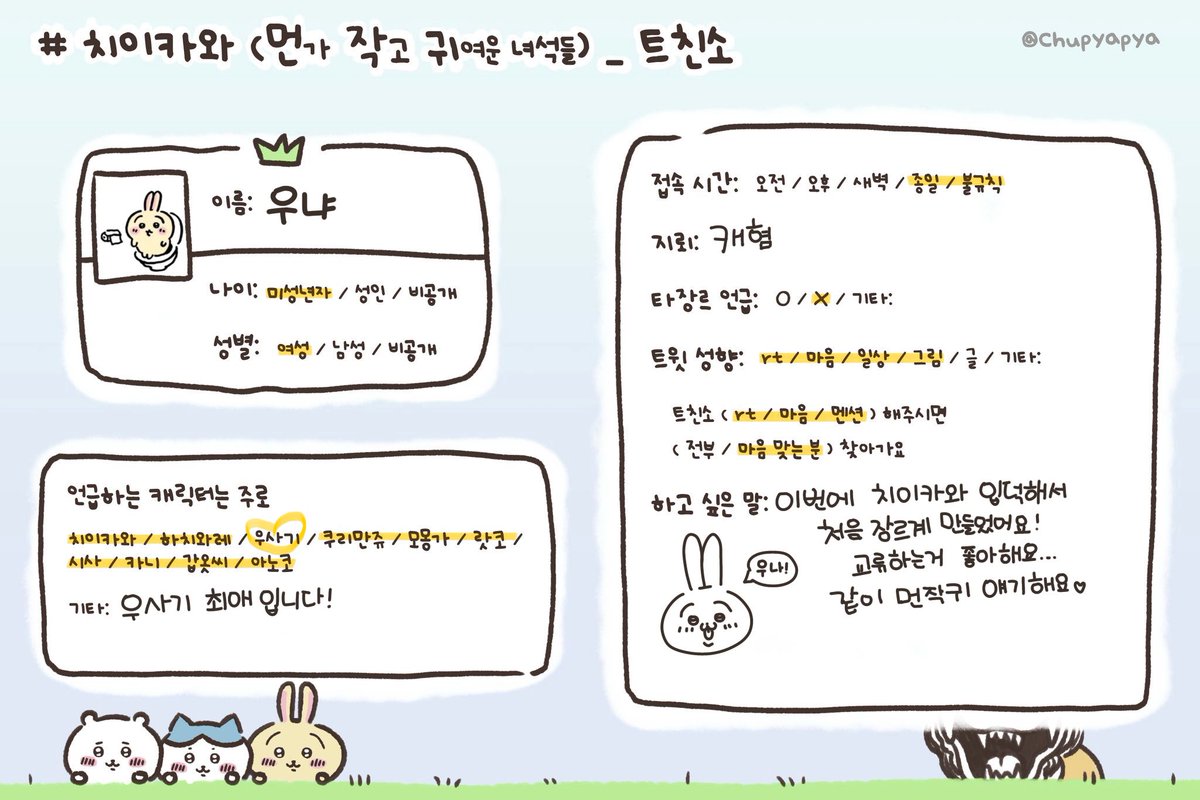 # 치이카와 (먼가 작고 귀여운 녀석들) _ 트친소
@Chupyapya
이름: 우냐
나이: 미성년자 / 성인 / 비공개
성별: 여성 / 남성 / 비공개
언급하는 캐릭터는 주로
치이카와 / 하치와레 / 우사기 / 쿠리만쥬 / 모몽가 / 랏코 /
시사 / 카니 / 갑옷씨 / 아노코
기타: 우사기 최애 입니다!
접속 시간: 오전 / 오후 / 새벽 / 종일 / 불규칙
지뢰: 캐혐
타장르 언급: O / X / 기타:
트윗 성향: rt / 마음 / 일상 / 그림 / 글 / 기타:
트친소 ( rt / 마음 / 멘션 ) 해주시면
( 전부 / 마음 맞는 분 ) 찾아가요
하고 싶은 말: 이번에 치이카와 입덕해서
처음 장르계 만들었어요!
교류하는거 좋아해요...
같이 먼작귀 얘기해요♥
우나!